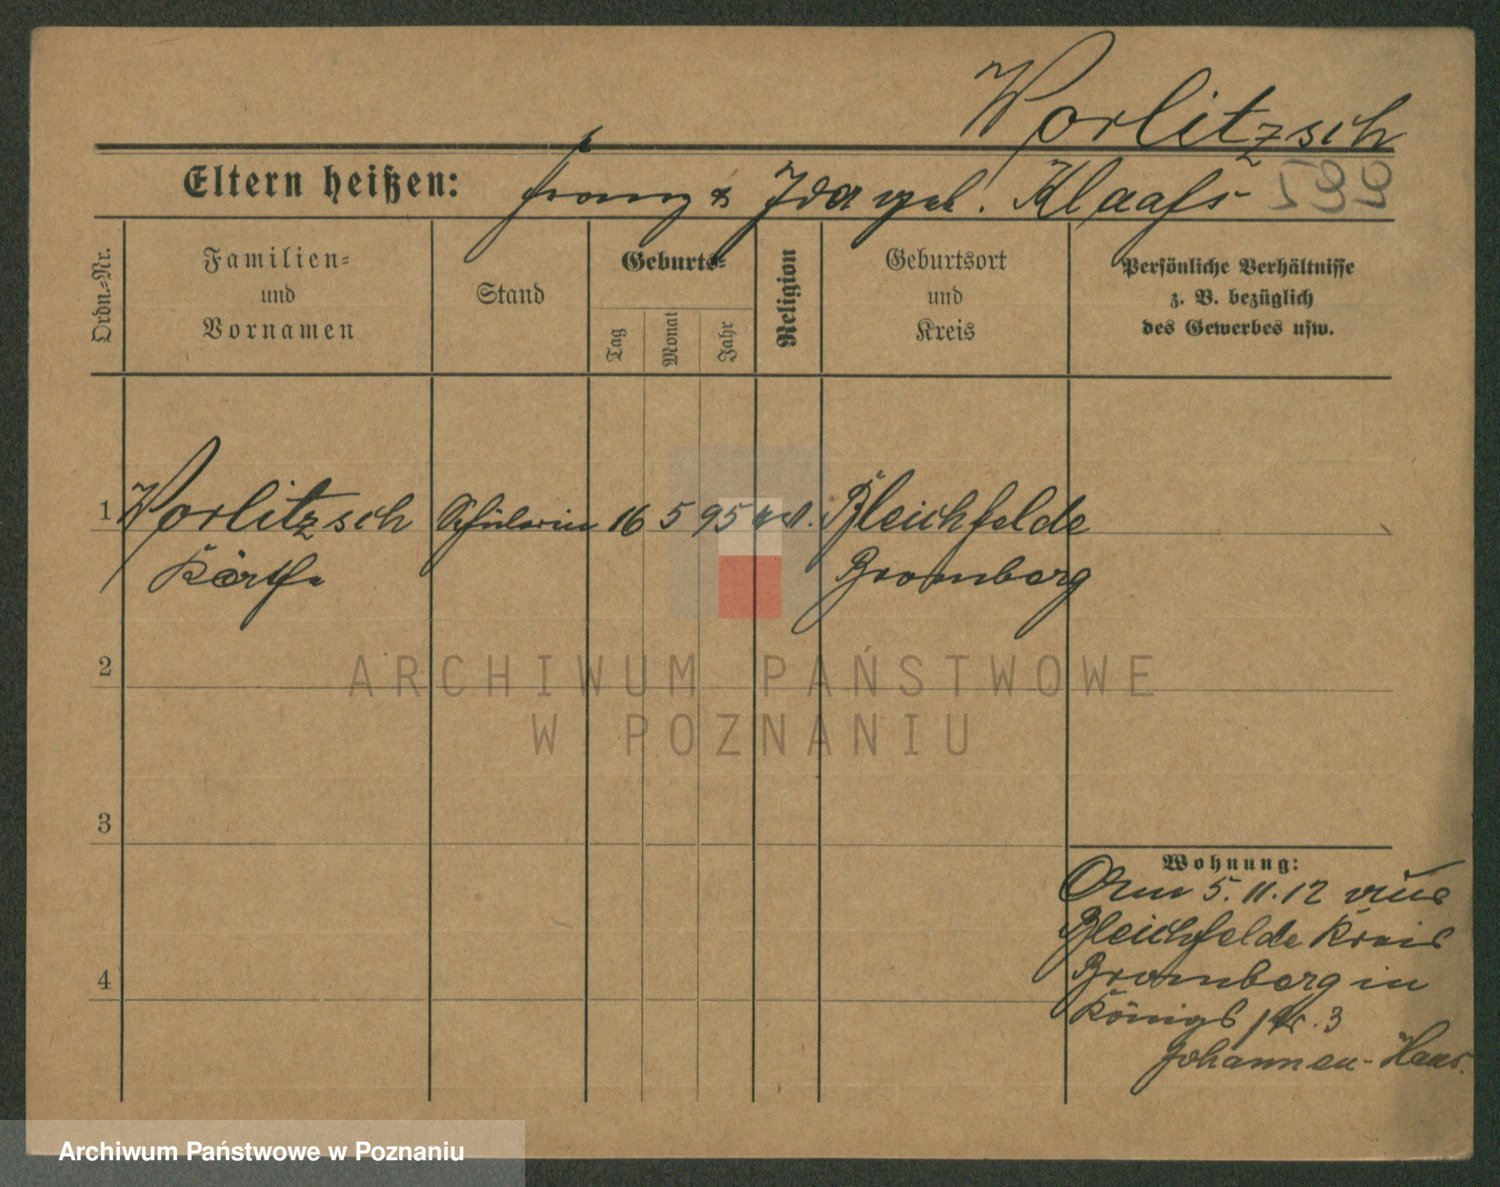 Worlitzsch
Eltern heißen: Franz & Ida geb. Klaass
Ordn.=Nr.
Familien=
und
Vornamen
Stand
Geburts=
Tag
Monat
Jahr
Religion
Geburtsort
und
Kreis
Persönliche Verhältnisse
z. B. bezüglich
des Gewerbes usw.
1 Worlitzsch Schülerin 16 5 95 ev. Bleichfelde
Käthe Bromberg
2
3
4
Wohnung:
Am 5.11.12 aus
Bleichfelde Kreis
Bromberg in
Königs str. 3
Johannen-Haus.
ARCHIWUM PAŃSTWOWE
W POZNANIU
Archiwum Państwowe w Poznaniu